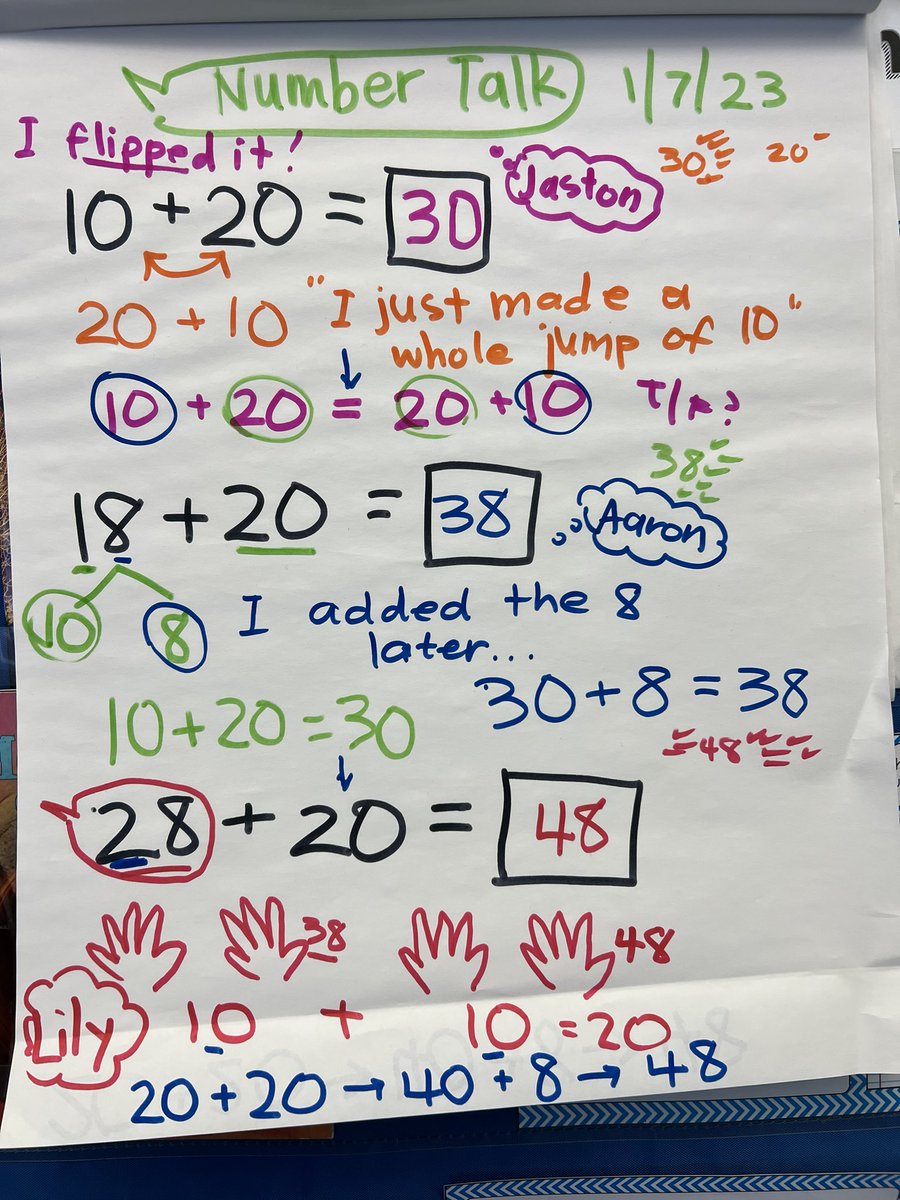 Number Talk 1/7/23
I flipped it!
10 + 20 = 30 Jaston 30 20
20 + 10 "I just made a
whole jump of 10"
10 + 20 = 20 + 10 T/F?
38
18 + 20 = 38 Aaron
10 8 I added the 8
later...
30 + 8 = 38
10 + 20 = 30
48
28 + 20 = 48
38 48
Lily 10 + 10 = 20
20 + 20 → 40 + 8 → 48